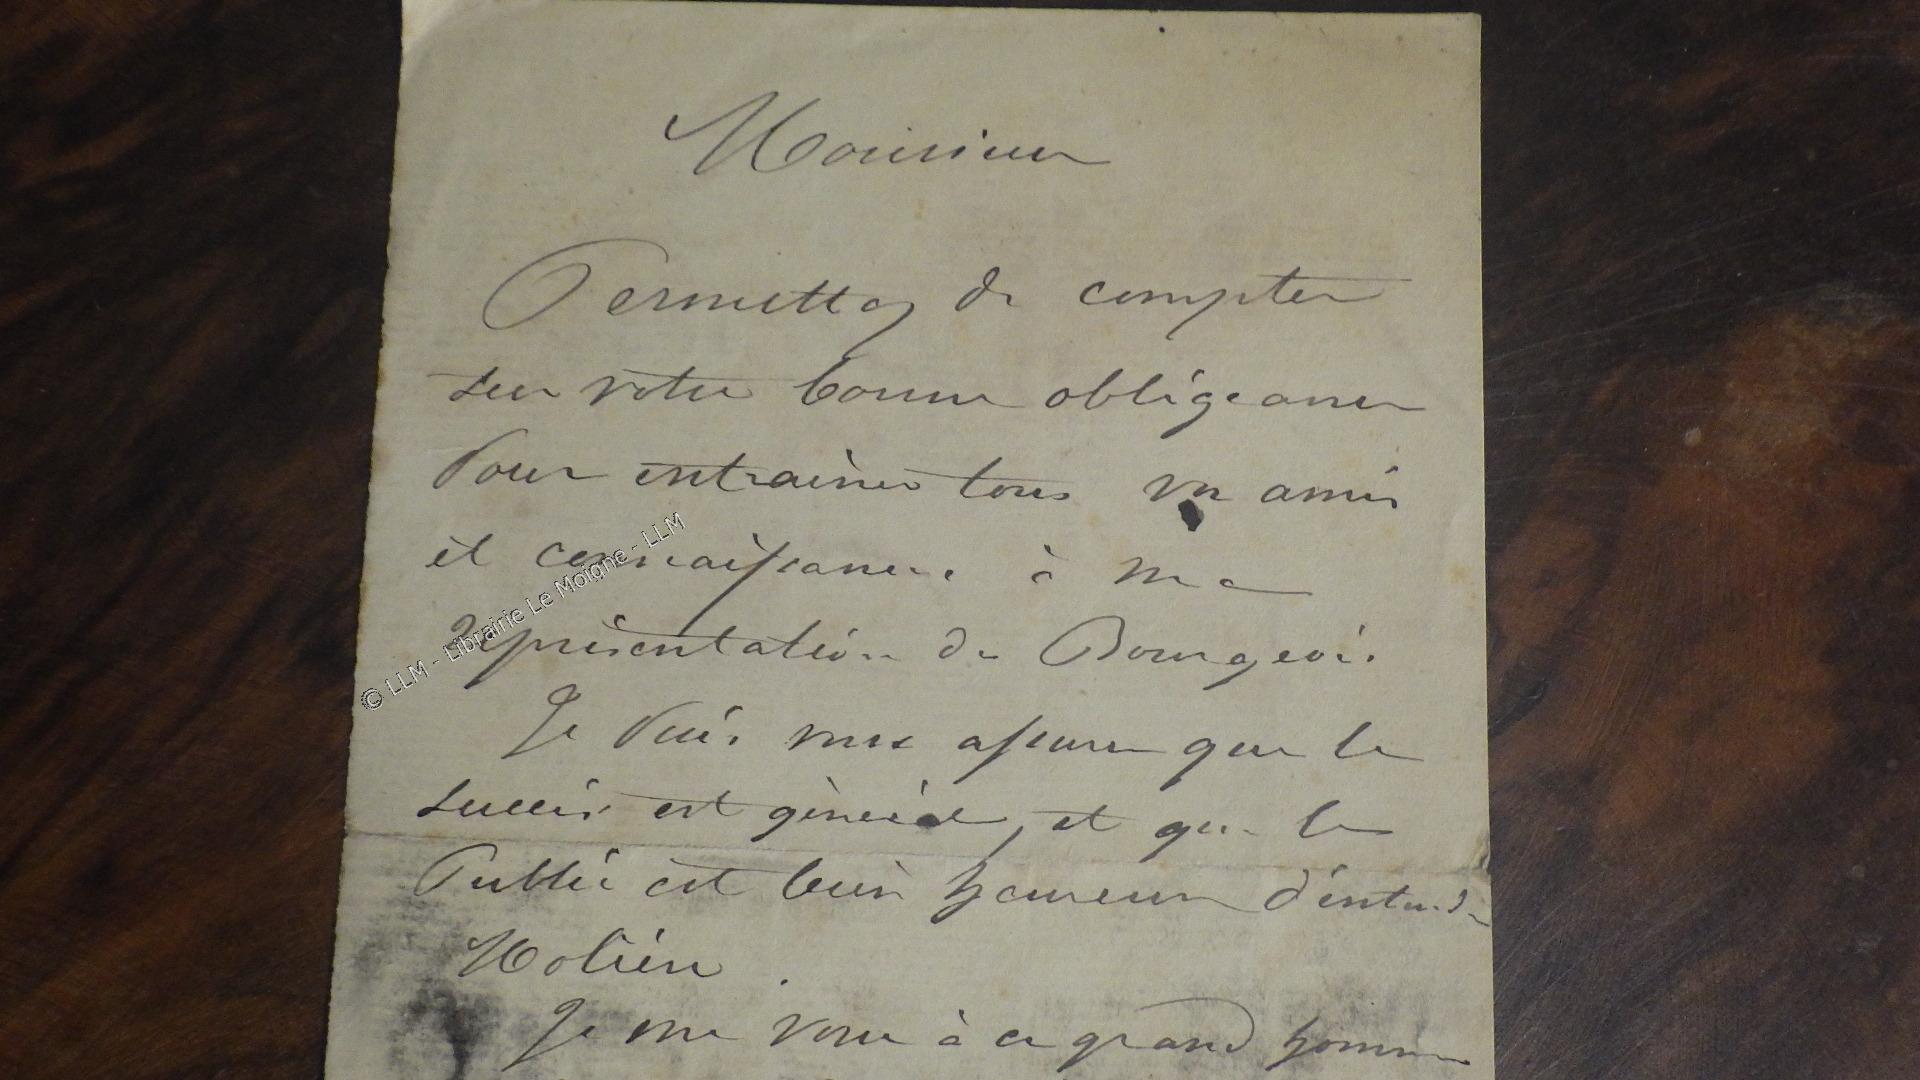 Monsieur
Permettez de compter
sur votre bonne obligeance
Pour entrainer tous vos amis
et connaissances à ma
représentation du Bourgeois.
Je puis vous assurer que le
succès est général, et que le
Public est bien heureux d'entendre
Molière.
Je me voue à ce grand homme
© LLM - Librairie Le Moigne - LLM